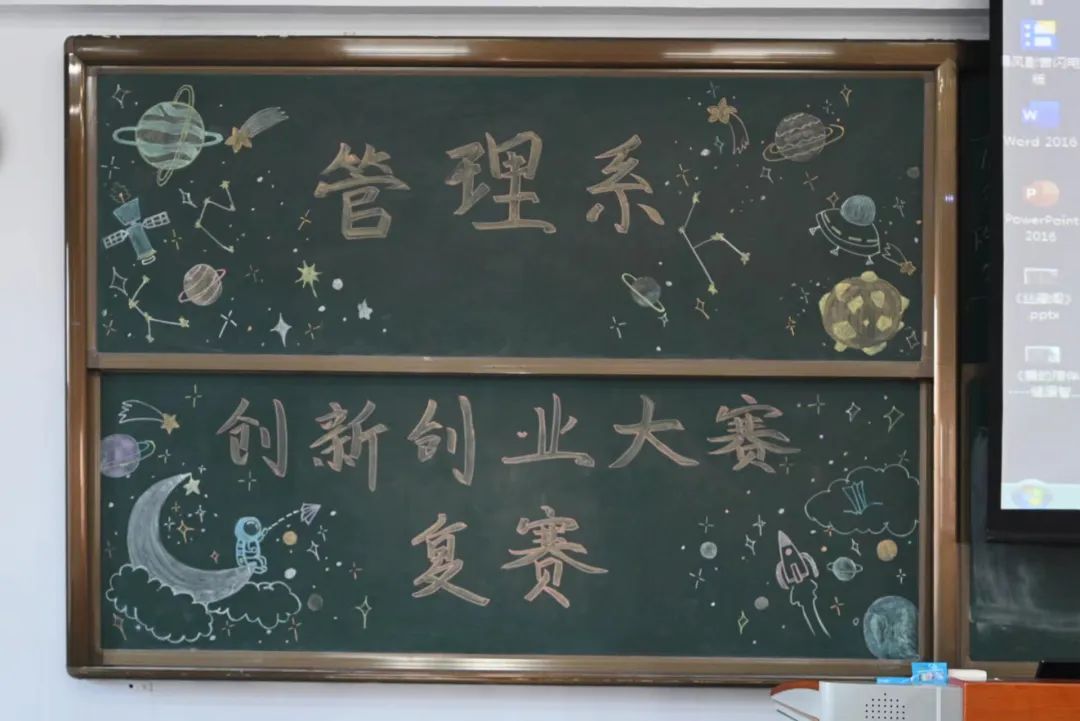 管理系
创新创业大赛
复赛
Word 2016
PowerPoint
2016
.pptx